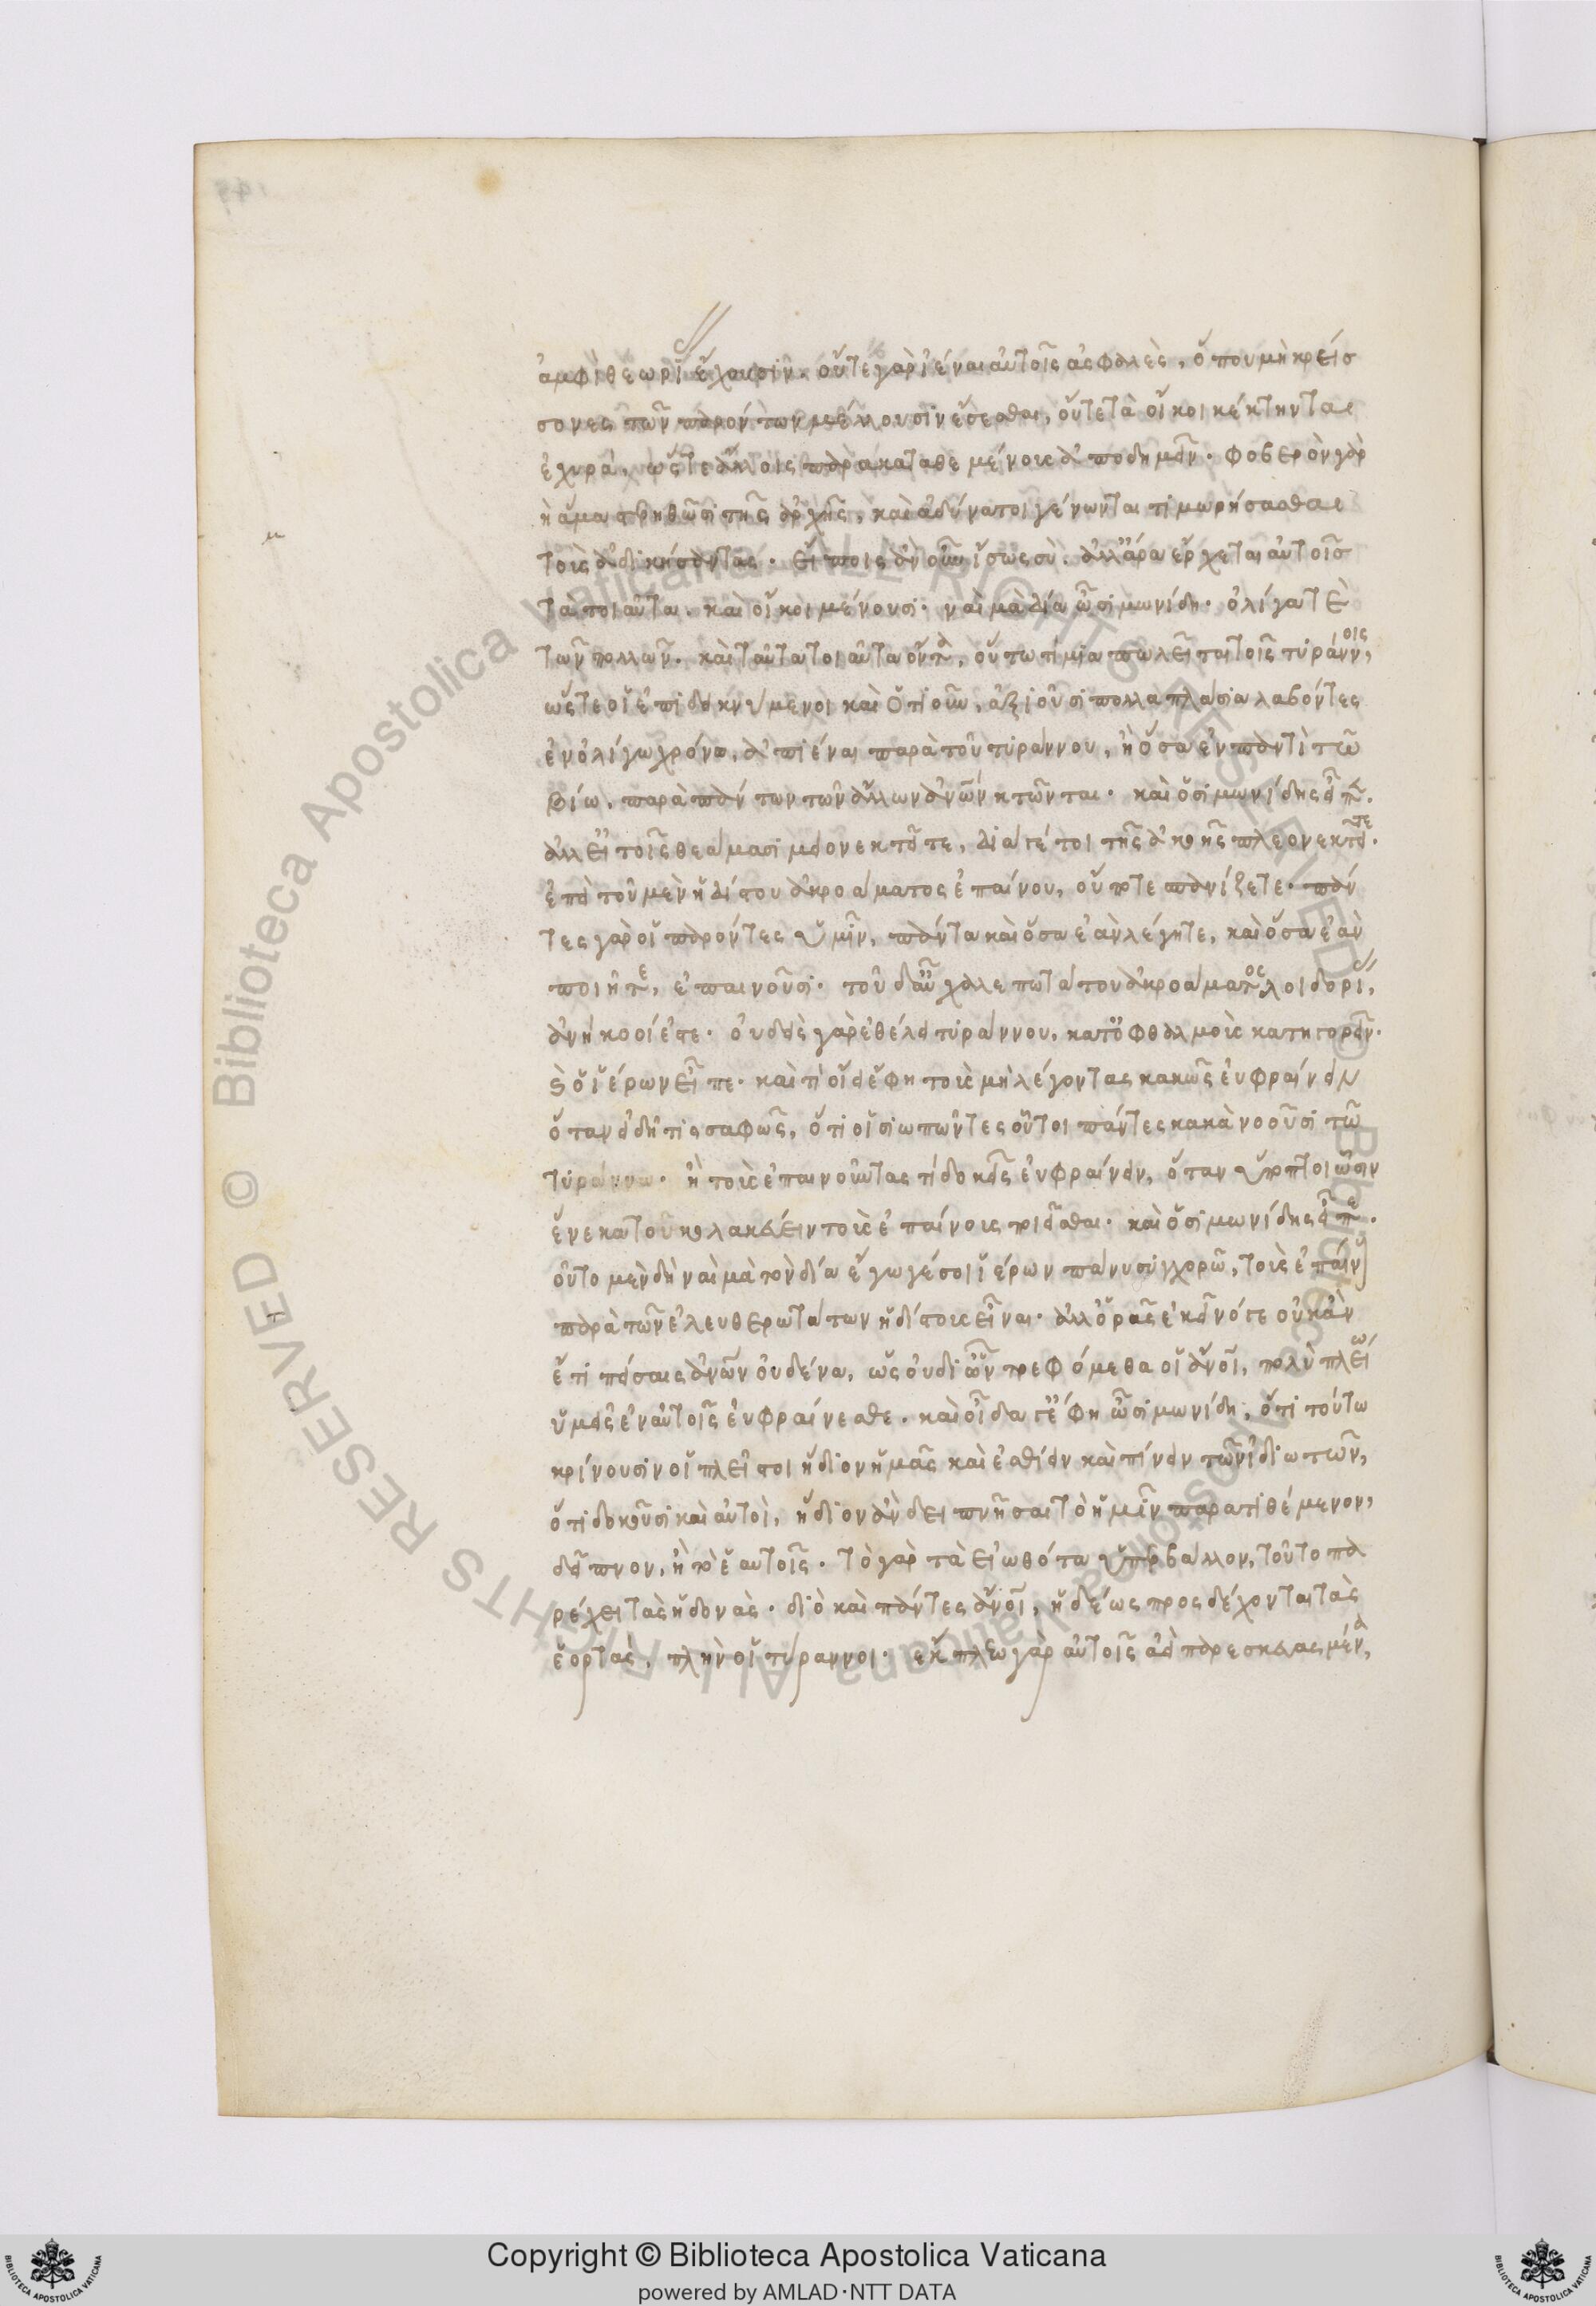 ἀμφὶ θεωρί ἔχουσιν. οὔτε γὰρ ἰέναι αὐτοῖς ἀσφαλὲς, ὅπου μὴ κρείσ
σονες τῶν παρόντων μέλλουσιν ἔσεσθαι, οὔτε τὰ οἴκοι κέκτηνται
ἐχυρὰ, ὥστε ἄλλοις παρακαταθεμένοις ἀποδημεῖν. φοβερὸν γὰρ
ἢ ἅμα στρηθῶσι τῆς ἀρχῆς, καὶ ἀδύνατοι γένωνται τιμωρήσασθαι
τοὺς ἀδικήσαντας. εἴποις ἂν οὖν ἴσως σὺ. ἀλλ' ἄρα ἔρχεται αὐτοῖς
τὰ τοιαῦτα. καὶ οἴκοι μένουσι. ναὶ μὰ Δία ὦ σιμωνίδη. ὀλίγα τὲ
τῶν πολλῶν. καὶ ταῦτα τοιαῦτα ὄντα, οὕτω τίμια πωλεῖται τοῖς τυράννοις,
ὥστε οἱ ἐπιδεικνύμενοι καὶ ὁτιοῦν, ἀξιοῦσι πολλαπλάσια λαβόντες
ἐν ὀλίγω χρόνω, ἀπιέναι παρὰ τοῦ τυράννου, ἢ ὅσα ἐν παντὶ τῶ
βίω, παρὰ πάντων τῶν ἄλλων ἀνων κτῶνται. καὶ ὁ σιμωνίδης εἶπε.
ἀλλ' εἰ τοῖς θεάμασι μειονεκτεῖτε, διά γέ τοι τῆς ἀκοῆς πλεονεκτεῖτε.
ἐπεὶ τοῦ μὲν ἡδίστου ἀκροάματος ἐπαίνου, οὔποτε σπανίζετε. πάν
τες γὰρ οἱ παρόντες ὑμῖν, πάντα καὶ ὅσα ἐὰν λέγητε, καὶ ὅσα ἐὰν
ποιῆτε, ἐπαινοῦσι. τοῦ δ' αὖ χαλεπωτάτου ἀκροάματος λοιδορί,
ἀνήκοοί ἐστε. οὐδεὶς γὰρ ἐθέλει τυράννου, κατ' ὀφθαλμοὺς κατηγορεῖν.
καὶ ὁ ἱέρων εἶπε. καὶ τί οἴει ἔφη τοὺς μὴ λέγοντας κακῶς εὐφραίνειν
ὅταν εἰδῆ τις σαφῶς, ὅτι οἱ σιωπῶντες οὗτοι πάντες κακὰ νοοῦσι τῶ
τυράννω. ἢ τοὺς ἐπαινοῦντας τί δοκεῖς εὐφραίνειν, ὅταν ὕποπτοι ὦσιν
ἕνεκα τοῦ κολακεύειν τοὺς ἐπαίνους ποιεῖσθαι. καὶ ὁ σιμωνίδης εἶπε.
οὗτο μὲν δὴ ναὶ μὰ τὸν δία ἔγωγέ σοι ἱέρων πάνυ συγχορῶ, τοὺς ἐπαίν
παρὰ τῶν ἐλευθερωτάτων ἡδίστους εἶναι. ἀλλ' ὁρᾶς ἐκεῖνό γε οὐκ ἂν
ἔτι πείσαις ἀνων οὐδένα, ὡς οὐ δι' ὧν τρεφόμεθα οἱ ἀνοι, πολὺ πλείω
ὑμεῖς ἐν αὐτοῖς εὐφραίνεσθε. καὶ οἶδά γ' ἔφη ὦ σιμωνίδη, ὅτι τούτω
κρίνουσιν οἱ πλεῖστοι ἥδιον ἡμᾶς καὶ ἐσθίειν καὶ πίνειν τῶν ἰδιωτῶν,
ὅτι δοκοῦσι καὶ αὐτοὶ, ἥδιον ἂν δειπνῆσαι τὸ ἡμῖν παρατιθέμενον,
δεῖπνον, ἢ τὸ ἑαυτοῖς. τὸ γὰρ τὰ εἰωθότα ὑπερβάλλον, τοῦτο πα
ρέχει τὰς ἡδονὰς. διὸ καὶ πάντες ἀνοι, ἡδέως προσδέχονται τὰς
ἑορτὰς, πλὴν οἱ τύραννοι. ἔκπλεω γὰρ αὐτοῖς ἀεὶ παρεσκευασμένα,